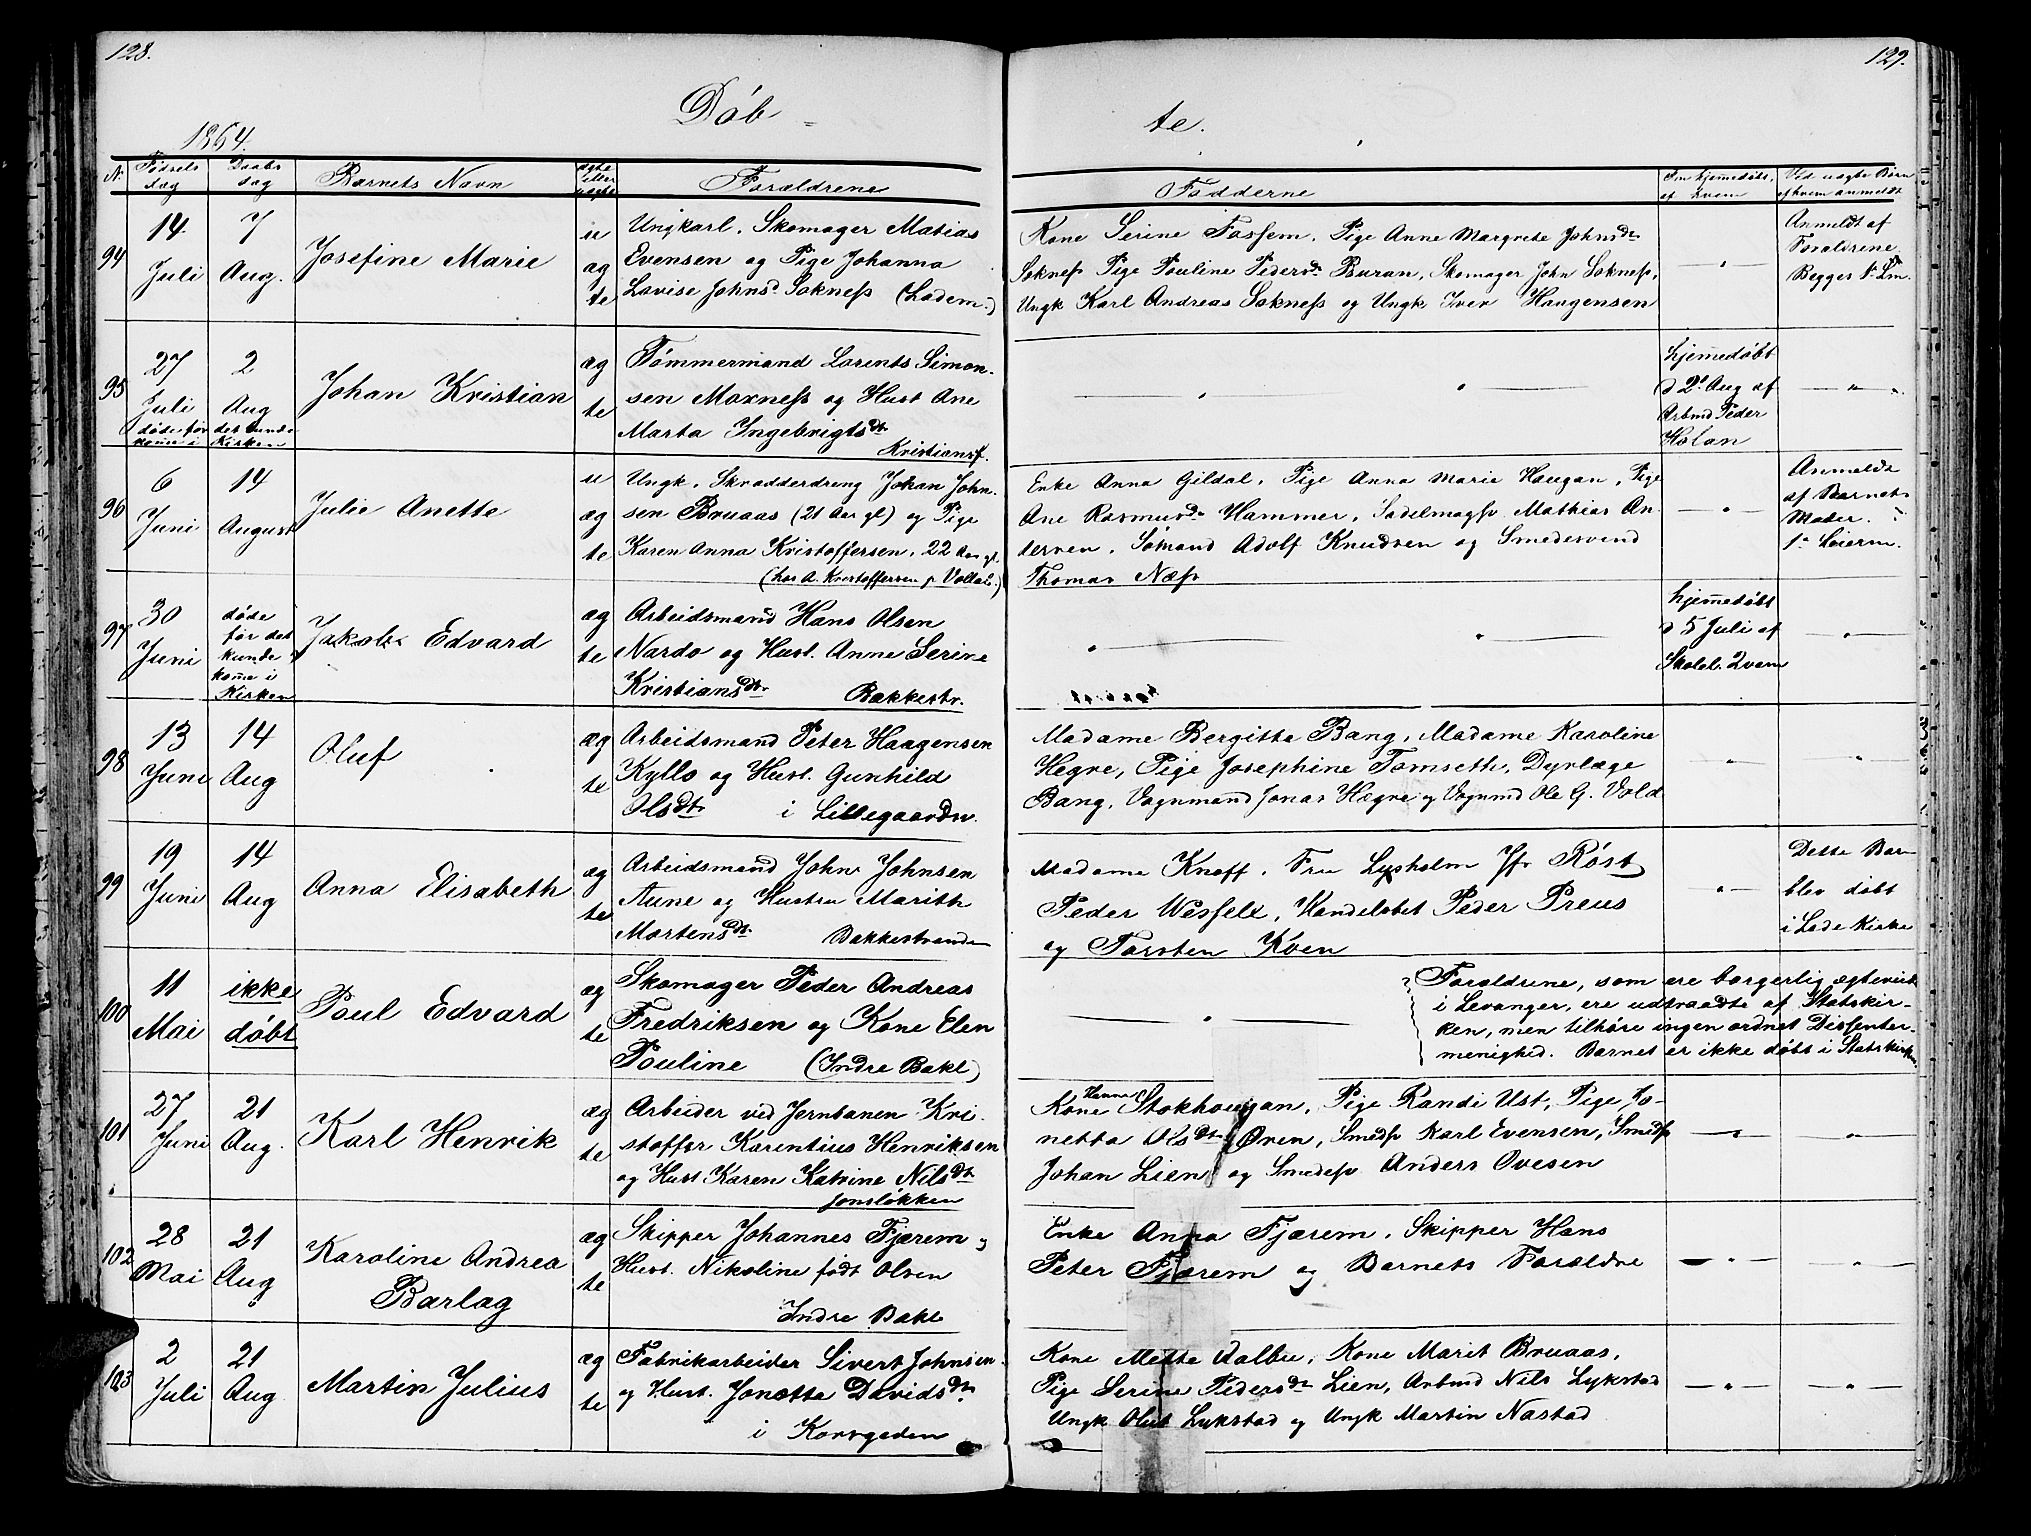 128.
129.
Döb-
te.
1864.
N.
Födsels
dag
Daabs
dag
Barnets Navn
ægte
eller
uægte
Forældrene
Fadderne
Om hjemmedöbt,
af hvem
Ved uægte Børn
af hvem anmeldt
94
14.
Juli
7
Aug.
Josefine Marie
u
æg
te
Ungkarl, Skomager Matias
Evensen og Pige Johanna
Lovise Johnsd. Sokness (Ladem.)
Kone Serine Fossem, Pige Anne Margrete Johnsdt
Sokness Pige Pauline Pedersd. Buran, Skomager John Sokness,
Ungk Karl Andreas Sokness og Ungk Iver Haugensen
Anmeldt af
Forældrene
Begges 1ste Lm.
95
27
Juli
döde før
kome i
2
Aug
det kunde
Kirken
Johan Kristian
æg
te
Tömmermand Lorents Simon-
sen Moxness og Hust Ane
Marta Ingebrigtsdt
Kristiansf.
hjemmedöbt
d 2d Aug af
Arbmd Peder
Holan
96
6
Juni
14
August
Julie Anette
u
æg
te
Ungk. Skrædderdreng Johan John-
sen Bruaas (21 Aar gl) og Pige
Karen Anna Kristoffersen, 22 Aar gl.
(hos A. Kristoffersen p Voldal.)
Enke Anna Gildal, Pige Anna Marie Haugan, Pige
Ane Rasmusd. Hammer, Sadelmagsv Mathias An-
tersen, Sömand Adolf Knudsen og Smedesvend
Thomas Næss
Anmeldt
af Barnets
Moder.
1ste Leierm.
97
30
Juni
döde
før det
kunde
kome i
Kirken
Jakob Edvard
æg
te
Arbeidsmand Hans Olsen
Nardo og Hust. Anne Serine
Kristiansdt. Bakkestr.
hjemmedöbt
d 5 Juli af
Skolel. Qvam
98
13
Juni
14
Aug
Oluf
æg
te
Arbeidsmand Peter Haagensen
Kyllo og Hust. Gunhild
Olsdt. i Lillegaardn.
Madame Bergitte Bang, Madame Karoline
Hegre, Pige Josephine Tomseth, Dyrlæge
Bang, Vognmand Jonas Hægre og Vognmd Ole G. Vold
99
19
Juni
14
Aug
Anna Elisabeth
æg
te
Arbeidsmand John Johnsen
Aune og Hustru Marith
Mortensdt. Bakkestranden
Madame Knoff, Fru Lysholm Jfr Röst
Peder Wessel, Handelsbet Peder Preus
og Torsten Koen
Dette Barn
blev döbt
i Lade Kirke
100
11
Mai
ikke
döbt
Poul Edvard
æg
te
Skomager Peder Andreas
Fredriksen og Kone Elen
Pouline (Indre Bakl)
Forældrene, som ere borgerlig ægteviet
i Levanger, ere udtraadte af Statskir-
ken, men tilhöre ingen ordnet Dissenter-
menighed. Barnet er ikke döbt i Statskirken
101
27
Juni
21
Aug.
Karl Henrik
æg
te
Arbeider ved Jernbanen Kri-
stoffer Karentius Henriksen
og Hust Karen Katrine Nilsdt.
Jonslökken
Kone Hanna Stokhougan, Pige Randi Ust, Pige Jo-
netta Olsdt Ören, Smedsv Karl Evensen, Smedsv
Johan Lien og Smedesv Anders Ovesen
102
28
Mai
21
Aug
Karoline Andrea
Barlag
æg
te
Skipper Johannes Fjærem og
Hust. Nikoline født Olsen
Indre Bakl
Enke Anna Fjærem, Skipper Hans
Peter Fjærem og Barnets Forældre
103
2
Juli
21
Aug
Martin Julius
æg
te
Fabrikarbeider Sivert Johnsen
og Hust. Jonetta Davidsdt
i Korsgaden
Kone Mette Aalbu, Kone Marit Bruaas,
Pige Serine Pedersdt Lien, Arbmd Nils Lykstad
Ungk Oluf Lykstad og Ungk Martin Nastad